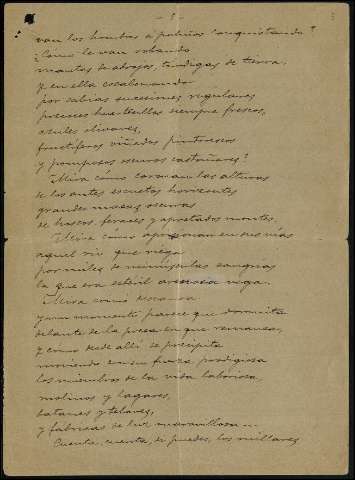 - 3 -
van los hombres á palmos conquistando?
¿Cómo le van robando
mantas de abrojos, tendigas de tierra,
y en ella escalonando
por sabias sucesiones regulares
preciosos huertecillos siempre frescos,
azules olivares,
fructíferos viñedos pintorescos
y pomposos oscuros castañares?
Mira cómo coronan las alturas
de los antes escuetos horizontes
grandes masas oscuras
de hoscos, feraces y apretados montes.
Mira cómo aprisionan en sus vías
aquel río que riega
por miles de minúsculas sangrías
la que era estéril arenosa vega.
Mira como descansa
y un momento parece que dormita
delante de la presa en que remansa,
y cómo desde allí se precipita
moviendo en su fuerza prodigiosa
los miembros de la vida laboriosa,
molinos y lagares,
batanes y telares,
y fábricas de luz maravillosa...
Cuenta, cuenta, si puedes, los millares